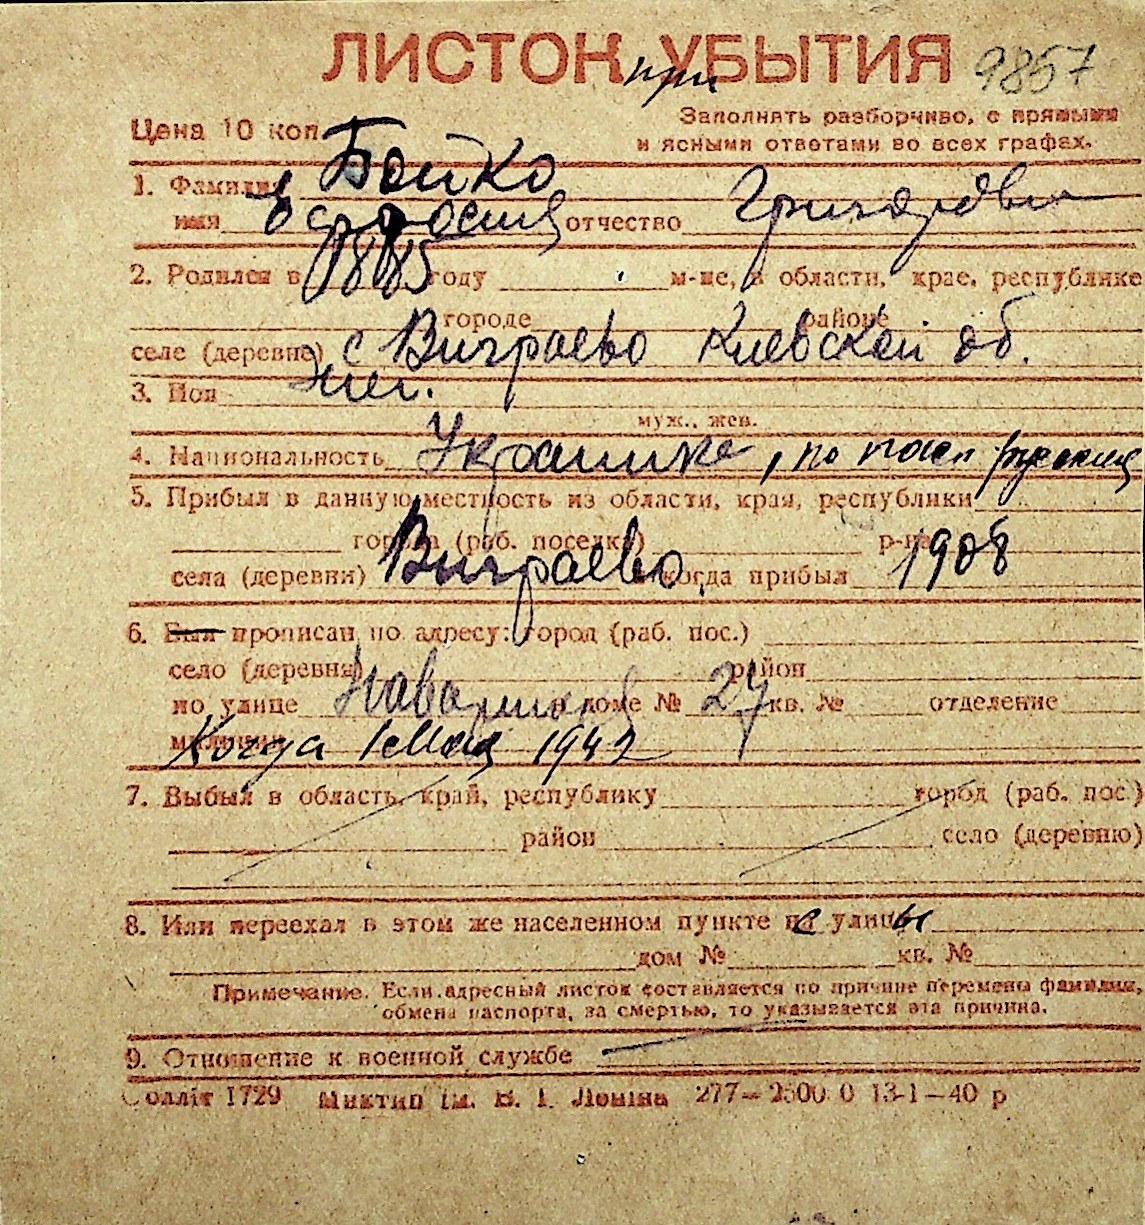 ЛИСТОК УБЫТИЯ 9857
при
Цена 10 коп.
Заполнять разборчиво, с прямыми
и ясными ответами во всех графах.
1. Фамилия Бойко
имя Ефросиния отчество Григорьевна
2. Родился в 1885 году м-це, в области, крае, республике
городе районе
селе (деревне) с Виграево Киевской об.
3. Пол Жен.
муж., жен.
4. Национальность Украинка, по пасп русская
5. Прибыл в данную местность из области, края, республики
города (раб. поселка) р-на
села (деревни) Виграево и когда прибыл 1908
6. Был прописан по адресу: город (раб. пос.)
село (деревня) район
по улице доме № 27 кв. № отделение
милиции Когда 1 мая 1942
7. Выбыл в область, край, республику город (раб. пос.)
район село (деревню)
8. Или переехал в этом же населенном пункте с улицы
дом № кв. №
Примечание. Если адресный листок составляется по причине перемены фамилии,
обмена паспорта, за смертью, то указывается эта причина.
9. Отношение к военной службе
Обліт 1729 Миктип ім. В. І. Леніна 277—2500 0 13-1—40 р